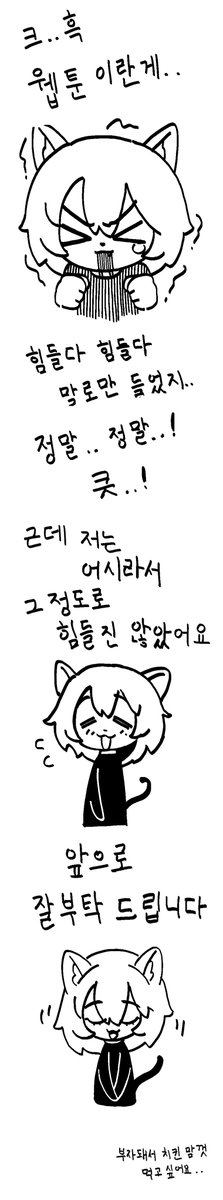 크..흑
웹툰 이란게..
힘들다 힘들다
말로만 들었지..
정말.. 정말..!
큿..!
근데 저는
어시라서
그정도로
힘들진 않았어요
앞으로
잘부탁 드립니다
부자돼서 치킨 맘껏
먹고싶어요..